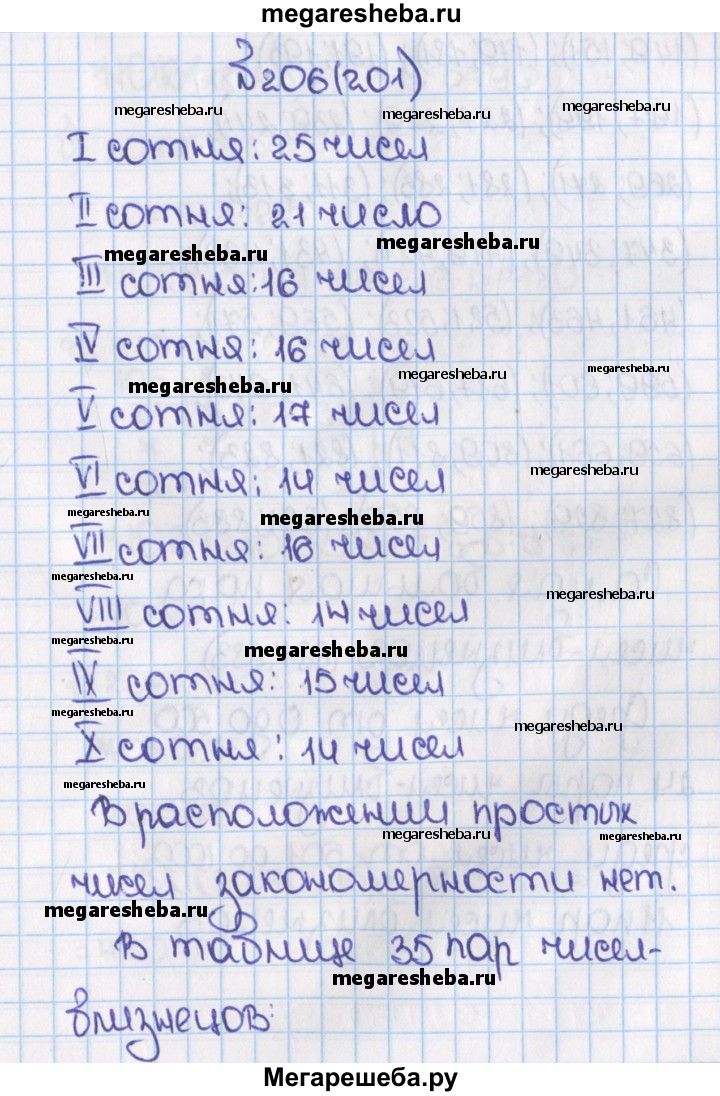 megaresheba.ru
№206(201)
megaresheba.ru
megaresheba.ru
megaresheba.ru
I сотня: 25 чисел
II сотня: 21 число
megaresheba.ru
megaresheba.ru
III сотня: 16 чисел
IV сотня: 16 чисел
megaresheba.ru
megaresheba.ru
megaresheba.ru
V сотня: 17 чисел
VI сотня: 14 чисел
megaresheba.ru
megaresheba.ru
megaresheba.ru
VII сотня: 16 чисел
megaresheba.ru
megaresheba.ru
VIII сотня: 14 чисел
megaresheba.ru
megaresheba.ru
IX сотня: 15 чисел
megaresheba.ru
X сотня: 14 чисел
megaresheba.ru
В расположении простых
megaresheba.ru
megaresheba.ru
чисел закономерности нет.
megaresheba.ru
В таблице 35 пар чисел-
megaresheba.ru
близнецов:
Мегарешеба.ру